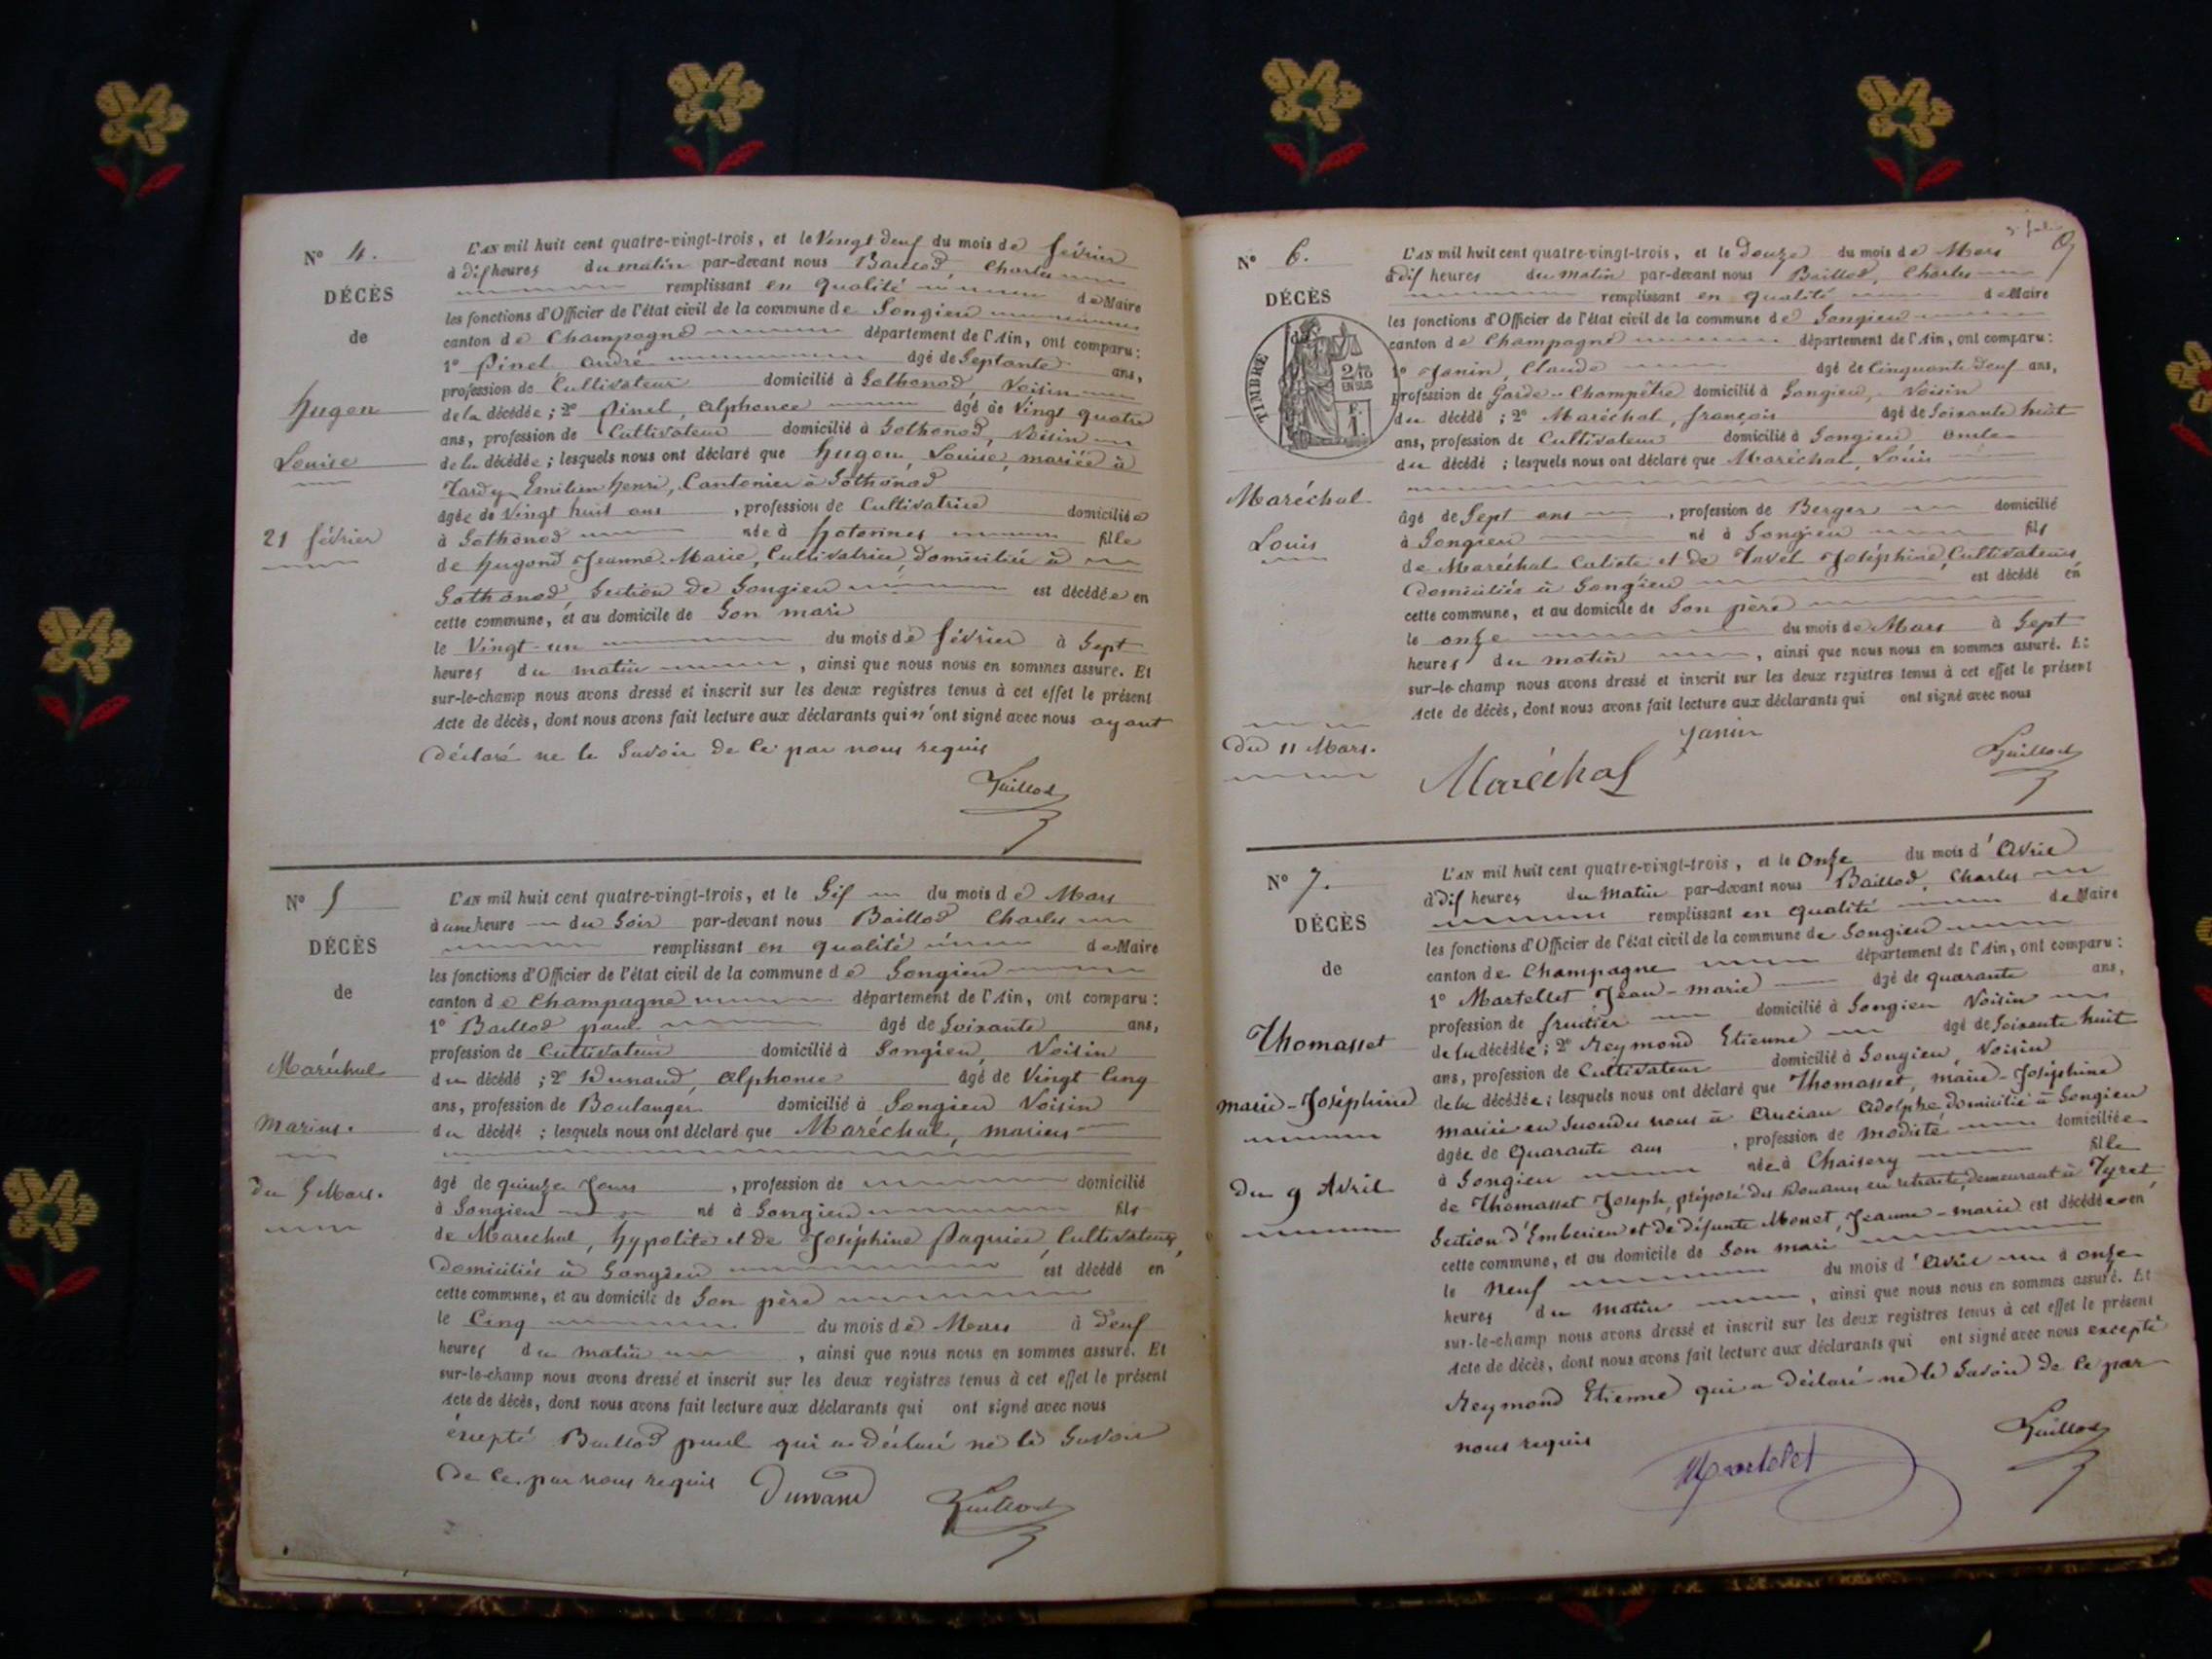 N° 4.
DÉCÈS
de
Hugon
Louise
21 février
L'AN mil huit cent quatre-vingt-trois, et le Vingt deux du mois de février
à dix heures du matin par-devant nous Baillod, Charles
remplissant en qualité de Maire
les fonctions d'Officier de l'état civil de la commune de Songieu
canton de Champagne département de l'Ain, ont comparu:
1° Pinel André âgé de Septante ans,
profession de Cultivateur domicilié à Sothonod, Voisin
de la décédée; 2° Pinel, Alphonce âgé de Vingt quatre
ans, profession de Cultivateur domicilié à Sothonod, Voisin
de la décédée; lesquels nous ont déclaré que Hugon, Louise, mariée à
Tardy Emilien henri, Cantonier à Sothonod
âgée de Vingt huit ans, profession de Cultivatrice domiciliée
à Sothonod née à hotonnes fille
de Hugond Jeanne-Marie, Cultivatrice, Domiciliée à
Sothonod, Section de Songieu est décédée en
cette commune, et au domicile de Son mari
le Vingt-un du mois de février à Sept
heures du matin, ainsi que nous nous en sommes assuré. Et
sur-le-champ nous avons dressé et inscrit sur les deux registres tenus à cet effet le présent
Acte de décès, dont nous avons fait lecture aux déclarants qui n'ont signé avec nous ayant
Déclaré ne le Savoir de Ce par nous requis
N° 5
DÉCÈS
de
Maréchal
Marius.
du 5 Mars.
L'AN mil huit cent quatre-vingt-trois, et le Six du mois de Mars
à une heure du Soir par-devant nous Baillod Charles
remplissant en qualité de Maire
les fonctions d'Officier de l'état civil de la commune de Songieu
canton de Champagne département de l'Ain, ont comparu:
1° Baillod paul âgé de Soixante ans,
profession de Cultivateur domicilié à Songieu, Voisin
du décédé; 2° Dunand, Alphonse âgé de Vingt Cinq
ans, profession de Boulanger domicilié à Songieu Voisin
du décédé; lesquels nous ont déclaré que Maréchal, marius
âgé de quinze Jours, profession de domicilié
à Songieu né à Songieu fils
de Marechal, hypolite et de Joséphine Paquier, Cultivateurs,
Domiciliés à Songieu est décédé en
cette commune, et au domicile de Son père
le Cinq du mois de Mars à Deux
heures du matin, ainsi que nous nous en sommes assuré. Et
sur-le-champ nous avons dressé et inscrit sur les deux registres tenus à cet effet le présent
Acte de décès, dont nous avons fait lecture aux déclarants qui ont signé avec nous
éxcepté Baillod paul qui a Déclaré ne le Savoir
de Ce par nous requis Dunand
N° 6.
DÉCÈS
de
TIMBRE
2/10
EN SUS
Maréchal
Louis
Du 11 Mars.
L'AN mil huit cent quatre-vingt-trois, et le Douze du mois de Mars
à dix heures du matin par-devant nous Baillod, Charles
remplissant en qualité de Maire
les fonctions d'Officier de l'état civil de la commune de Songieu
canton de Champagne département de l'Ain, ont comparu:
1° Janin, Claude âgé de Cinquante Deux ans,
profession de Garde-Champêtre domicilié à Songieu, Voisin
du décédé; 2° Maréchal, françois âgé de Soixante huit
ans, profession de Cultivateur domicilié à Songieu oncle
du décédé; lesquels nous ont déclaré que Maréchal, Louis
âgé de Sept ans, profession de Berger domicilié
à Songieu né à Songieu fils
de Maréchal Calixte et de Joséphine, Cultivateurs
Domiciliés à Songieu est décédé en
cette commune, et au domicile de Son père
le onze du mois de Mars à Sept
heures du matin, ainsi que nous nous en sommes assuré. Et
sur-le-champ nous avons dressé et inscrit sur les deux registres tenus à cet effet le présent
Acte de décès, dont nous avons fait lecture aux déclarants qui ont signé avec nous
Janin
Maréchal
N° 7.
DÉCÈS
de
Thomasset
marie-Joséphine
Du 9 Avril
L'AN mil huit cent quatre-vingt-trois, et le Onze du mois d'Avril
à dix heures du Matin par-devant nous Baillod, Charles
remplissant en qualité de Maire
les fonctions d'Officier de l'état civil de la commune de Songieu
canton de Champagne département de l'Ain, ont comparu:
1° Martellet Jean-marie âgé de quarante ans,
profession de fruitier domicilié à Songieu Voisin
de la décédée; 2° Reymond Etienne âgé de Soixante huit
ans, profession de Cultivateur domicilié à Songieu, Voisin
de la décédée; lesquels nous ont déclaré que Thomasset, marie-Joséphine
mariée en Secondes noces à Ancian Adolphe, domicilié à Songieu
âgée de Quarante ans, profession de modiste domiciliée
à Songieu née à Chaisery fille
de Thomasset Joseph, préposé des Douanes en retraite, demeurant à
Section d'Emberieu et de défunte Monet, Jeanne-marie est décédée en
cette commune, et au domicile de Son mari
le Neuf du mois d'Avril à onze
heures du matin, ainsi que nous nous en sommes assuré. Et
sur-le-champ nous avons dressé et inscrit sur les deux registres tenus à cet effet le présent
Acte de décès, dont nous avons fait lecture aux déclarants qui ont signé avec nous excepté
Reymond Etienne qui a Déclaré ne le Savoir de Ce par
nous requis
Martelet